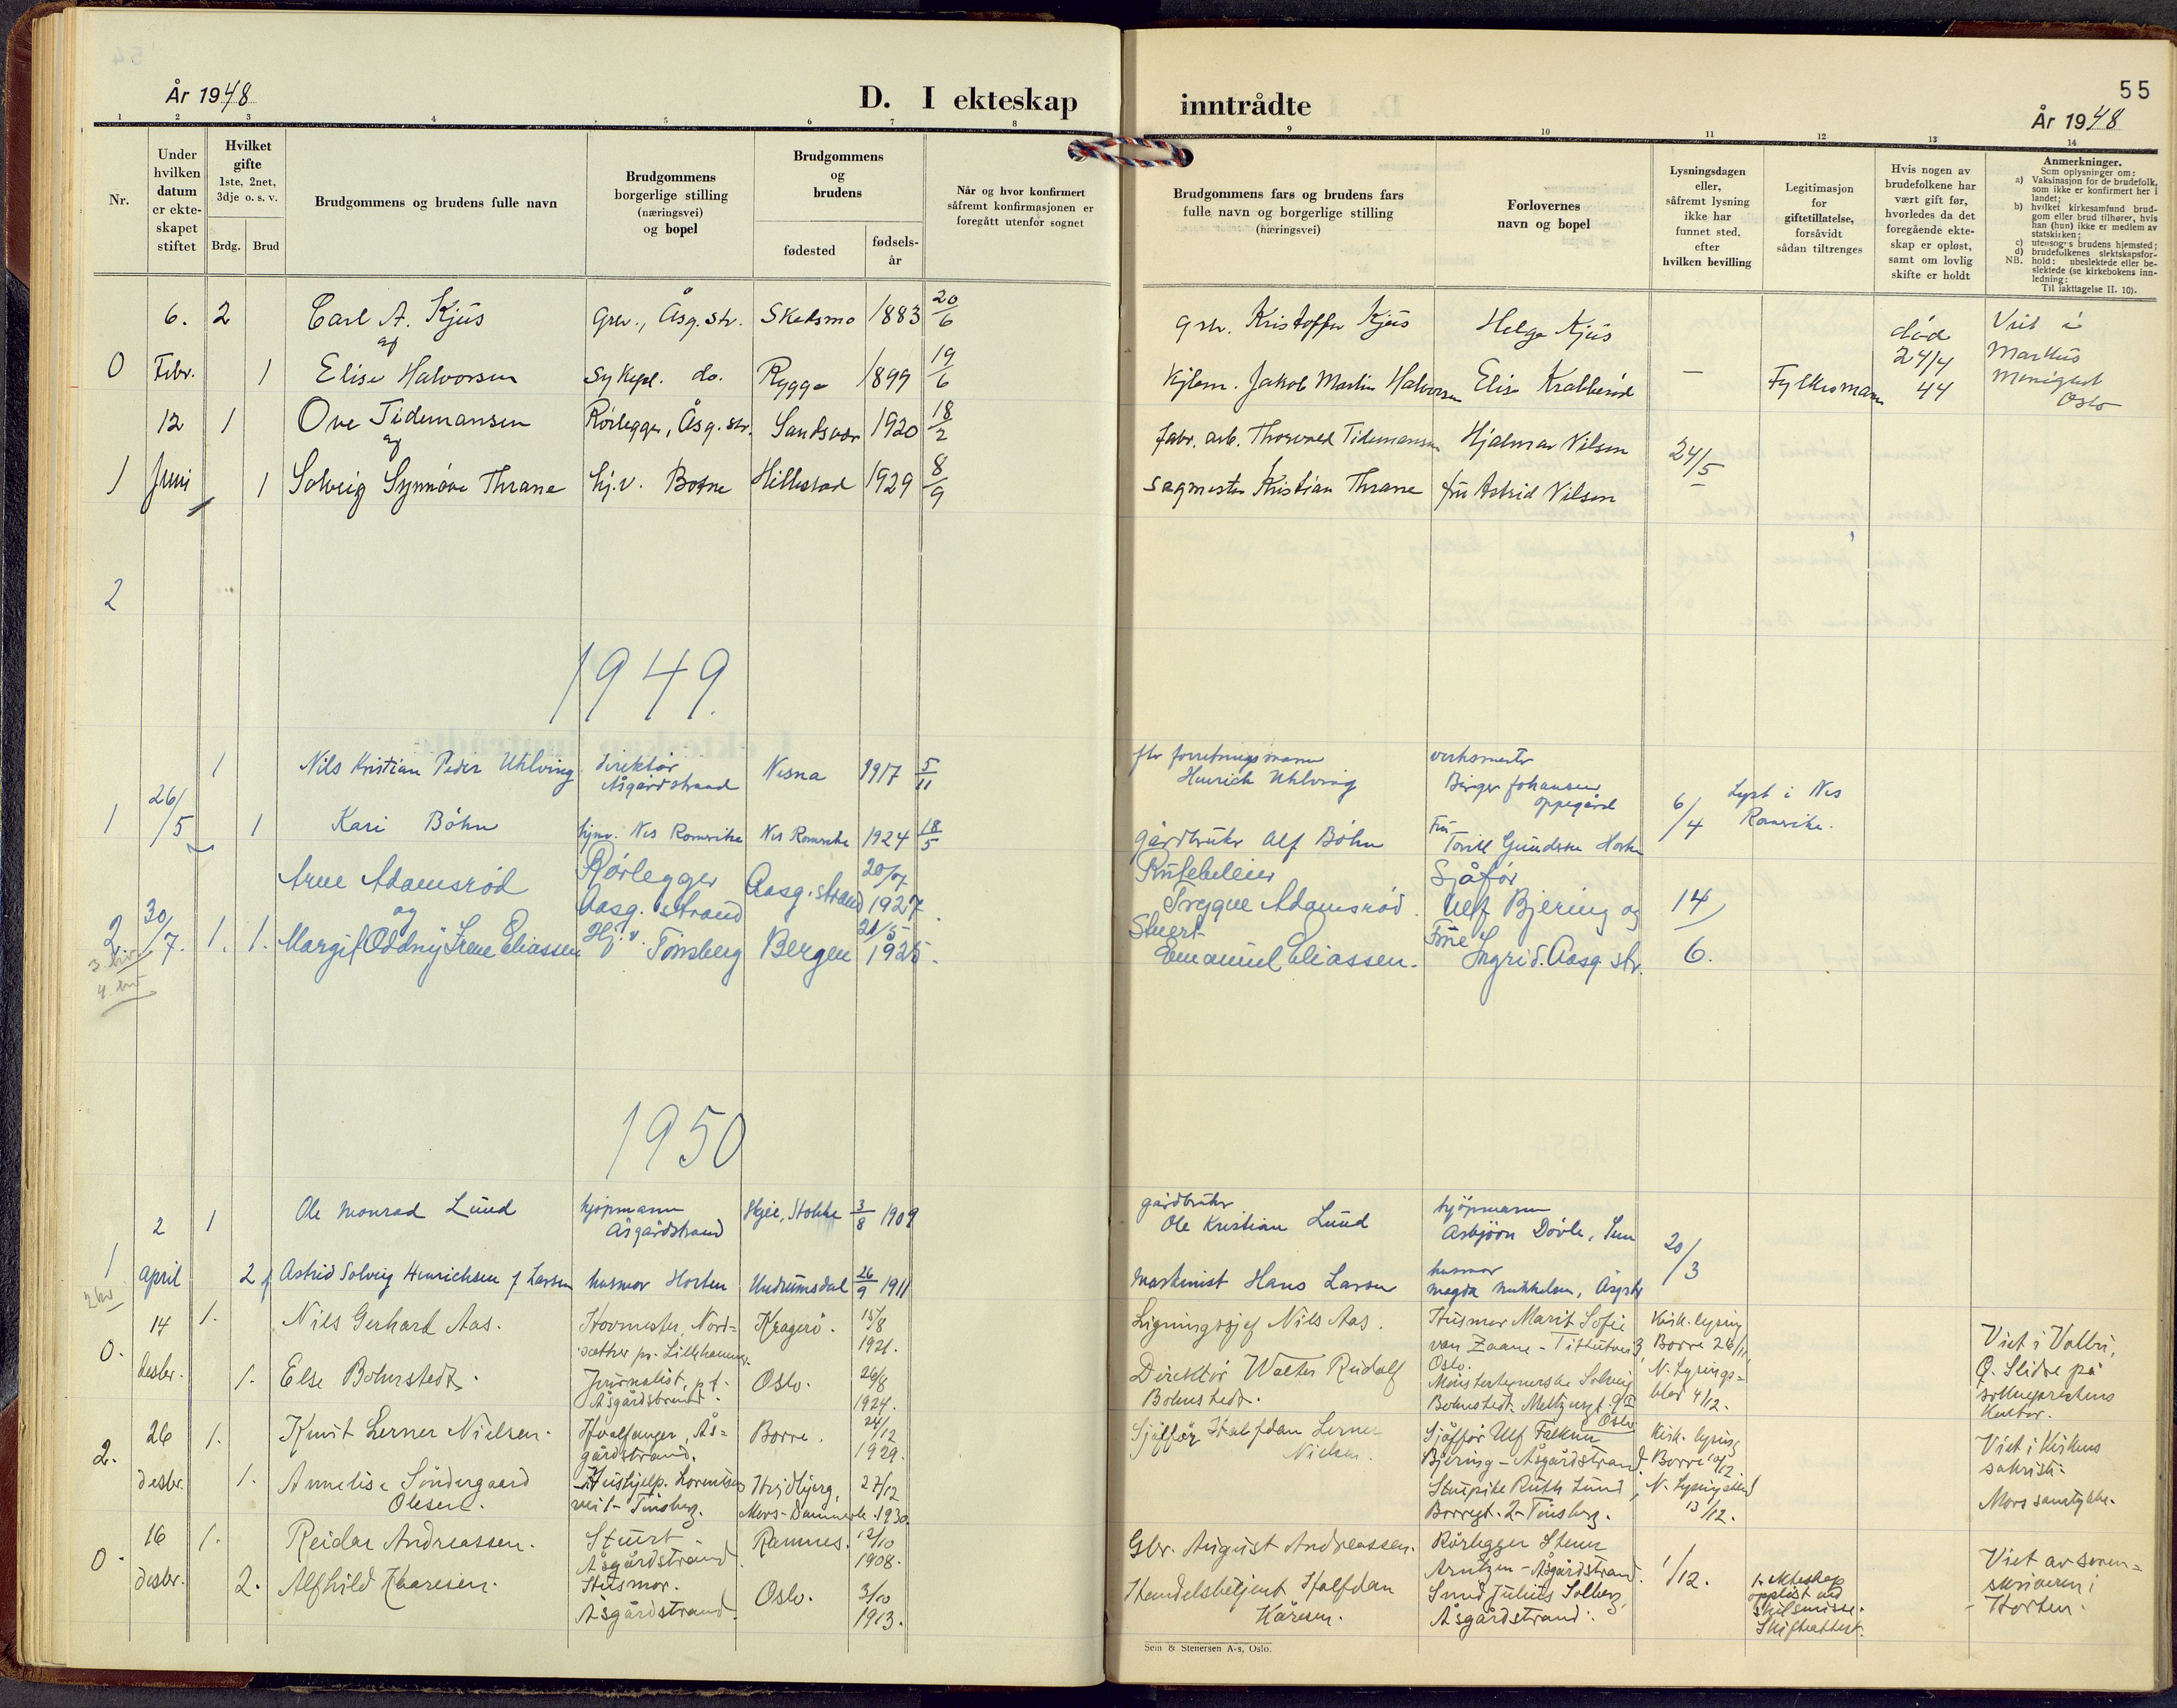 År 1948
D. I ekteskap
inntrådte
55
År 1948
1 2 3 4 5 6 7 8 9 10 11 12 13 14
Nr.
Under
hvilken
datum
er ekte-
skapet
stiftet
Hvilket
gifte
1ste, 2net,
3dje o. s. v.
Brdg. Brud
Brudgommens og brudens fulle navn
Brudgommens
borgerlige stilling
(næringsvei)
og bopel
Brudgommens
og
brudens
fødested
fødsels-
år
Når og hvor konfirmert
såfremt konfirmasjonen er
foregått utenfor sognet
Brudgommens fars og brudens fars
fulle navn og borgerlige stilling
(næringsvei)
Forlovernes
navn og bopel
Lysningsdagen
eller,
såfremt lysning
ikke har
funnet sted,
efter
hvilken bevilling
Legitimasjon
for
giftetillatelse,
forsåvidt
sådan tiltrenges
Hvis nogen av
brudefolkene har
vært gift før,
hvorledes da det
foregående ekte-
skap er opløst,
samt om lovlig
skifte er holdt
Anmerkninger.
Som oplysninger om:
a) Vaksinasjon for de brudefolk,
som ikke er konfirmert her i
landet;
b) hvilket kirkesamfund brud-
gom eller brud tilhører, hvis
han (hun) ikke er medlem av
statskirken;
c) utensogns brudens hjemsted;
d) brudefolkenes slektskapsfor-
hold: ubeslektede eller be-
slektede (se kirkebokens inn-
ledning:
NB.
Til iakttagelse II. 10).
6. 2 Carl A. Kjus Grv., Åsg.str. Skedsmo 1883 20/6 grv. Kristoffer Kjus Helge Kjus død Viet i
og 24/4 Markus
0 Febr. 1 Elise Halvorsen Sykepl. do. Rygge 1899 19/6 Jakob Martin Halvorsen Elise Krabberød — Fylkesmann 44 menighet
Oslo
12 1 Ove Tidemansen Rørlegger, Åsg.str. Sandsvær 1920 18/2 fabr. arb. Thorvald Tidemansen Hjalmar Nilsen 24/5
og
1 Juni 1 Solveig Synnøve Thrane hj.v. Botne Hillestad 1929 8/9 sagmester Kristian Thrane fru Astrid Nilsen
2
1949.
1 Nils Kristian Peder Uhlving direktør Nesna 1917 5/11 forretningsmann verksmester
Åsgårdstrand Henrich Uhlving Birger Johansen
Oppegård
1 26/5 1 Kari Böhn hjmv. Nes Romerike Nes Romerike 1924 18/5 gårdbruker Alf Böhn Fru 6/4 Lyst i Nes
Torill Gundersen Horten Romerike.
Arne Adamsrød Rørlegger Aasg.strand 20/7 Rutebileier Sjåfør
og Aasg. strand 1927. Trygve Adamsrød. Ulf Bjering og 14/
2 30/7. 1. 1. Margit Oddny Irene Eliassen Hj.v. Tønsberg Bergen 21/5 1925. Stuert Frue 6.
Emanuel Eliassen. Ingrid. Aasg.str.
3. bir
4. bir
1950
2 1 Ole Monrad Lund kjøpmann Stokke 3/8 1909 gårdbruker kjøpmann
Åsgårdstrand Ole Kristian Lund Asbjørn Døvle, Sem 20/3
1 april 2 Astrid Solveig Henrichsen f Larsen husmor Horten Undrumsdal 26/9 1911 Maskinist Hans Larsen husmor
Magda Mikkelsen, Åsgstr
14 1. Nils Gerhard Aas. Hovmester, Nord= Kragerö. 15/8 Ligningssjef Nils Aas. Husmor Marit Sofie Kirk. lysing
sætter pr. Lillehammer. 1921. van Zaane - Tittutvei 3, Borre 26/11
Oslo.
0. desbr. 1. Else Bohmstedt. Journalist, p.t. Oslo. 26/8 Direktör Walter Rudolf Mönstertegnerske Solveig N. Lysings= Viet i Volbu,
Åsgårdstrand. 1924. Bohmstedt. Bohmstedt. Meltzersgt. 9 II blad 4/12. Ø. Slidre på
Oslo. sokneprestens
kontor.
26 1. Knut Lerner Nielsen. Hvalfanger, Ås= Borre. 24/12 Sjåfför Halfdan Lerner Sjåfför Ulf Falkum Kirk. lysing Viet i kirkens
gårdstrand. 1929. Nielsen. Bjering - Åsgårdstrand Borre 10/12 sakristi.
2. desbr. 1. Annelise Söndergaard Hushjelp. Hvidbjerg, 27/12 Stuepike Ruth Lund, N. Lysingsblad
Olesen. Tönsberg. Mors-Danmark. 1930. Borregt. 2-Tönsberg. 13/12. Mors
16 1. Reidar Andreassen. Stuert Ramnes. 12/10 Gbr. August Andreassen. Rörlegger Steen
Åsgårdstrand. 1908. Arntzen - Åsgårdstrand. 1/12. Viet av soren=
0. desbr. 2. Alfhild Kaaresen. Husmor. Oslo. 3/10 Handelsbetjent Halfdan Smed Julius Solberg, 1. ekteskap skriveren i
Åsgårdstrand. 1913. Kåresen. Åsgårdstrand. oppløst ved Horten.
skilsmisse.
Skifteattest.
Sem & Stenersen A-s, Oslo.